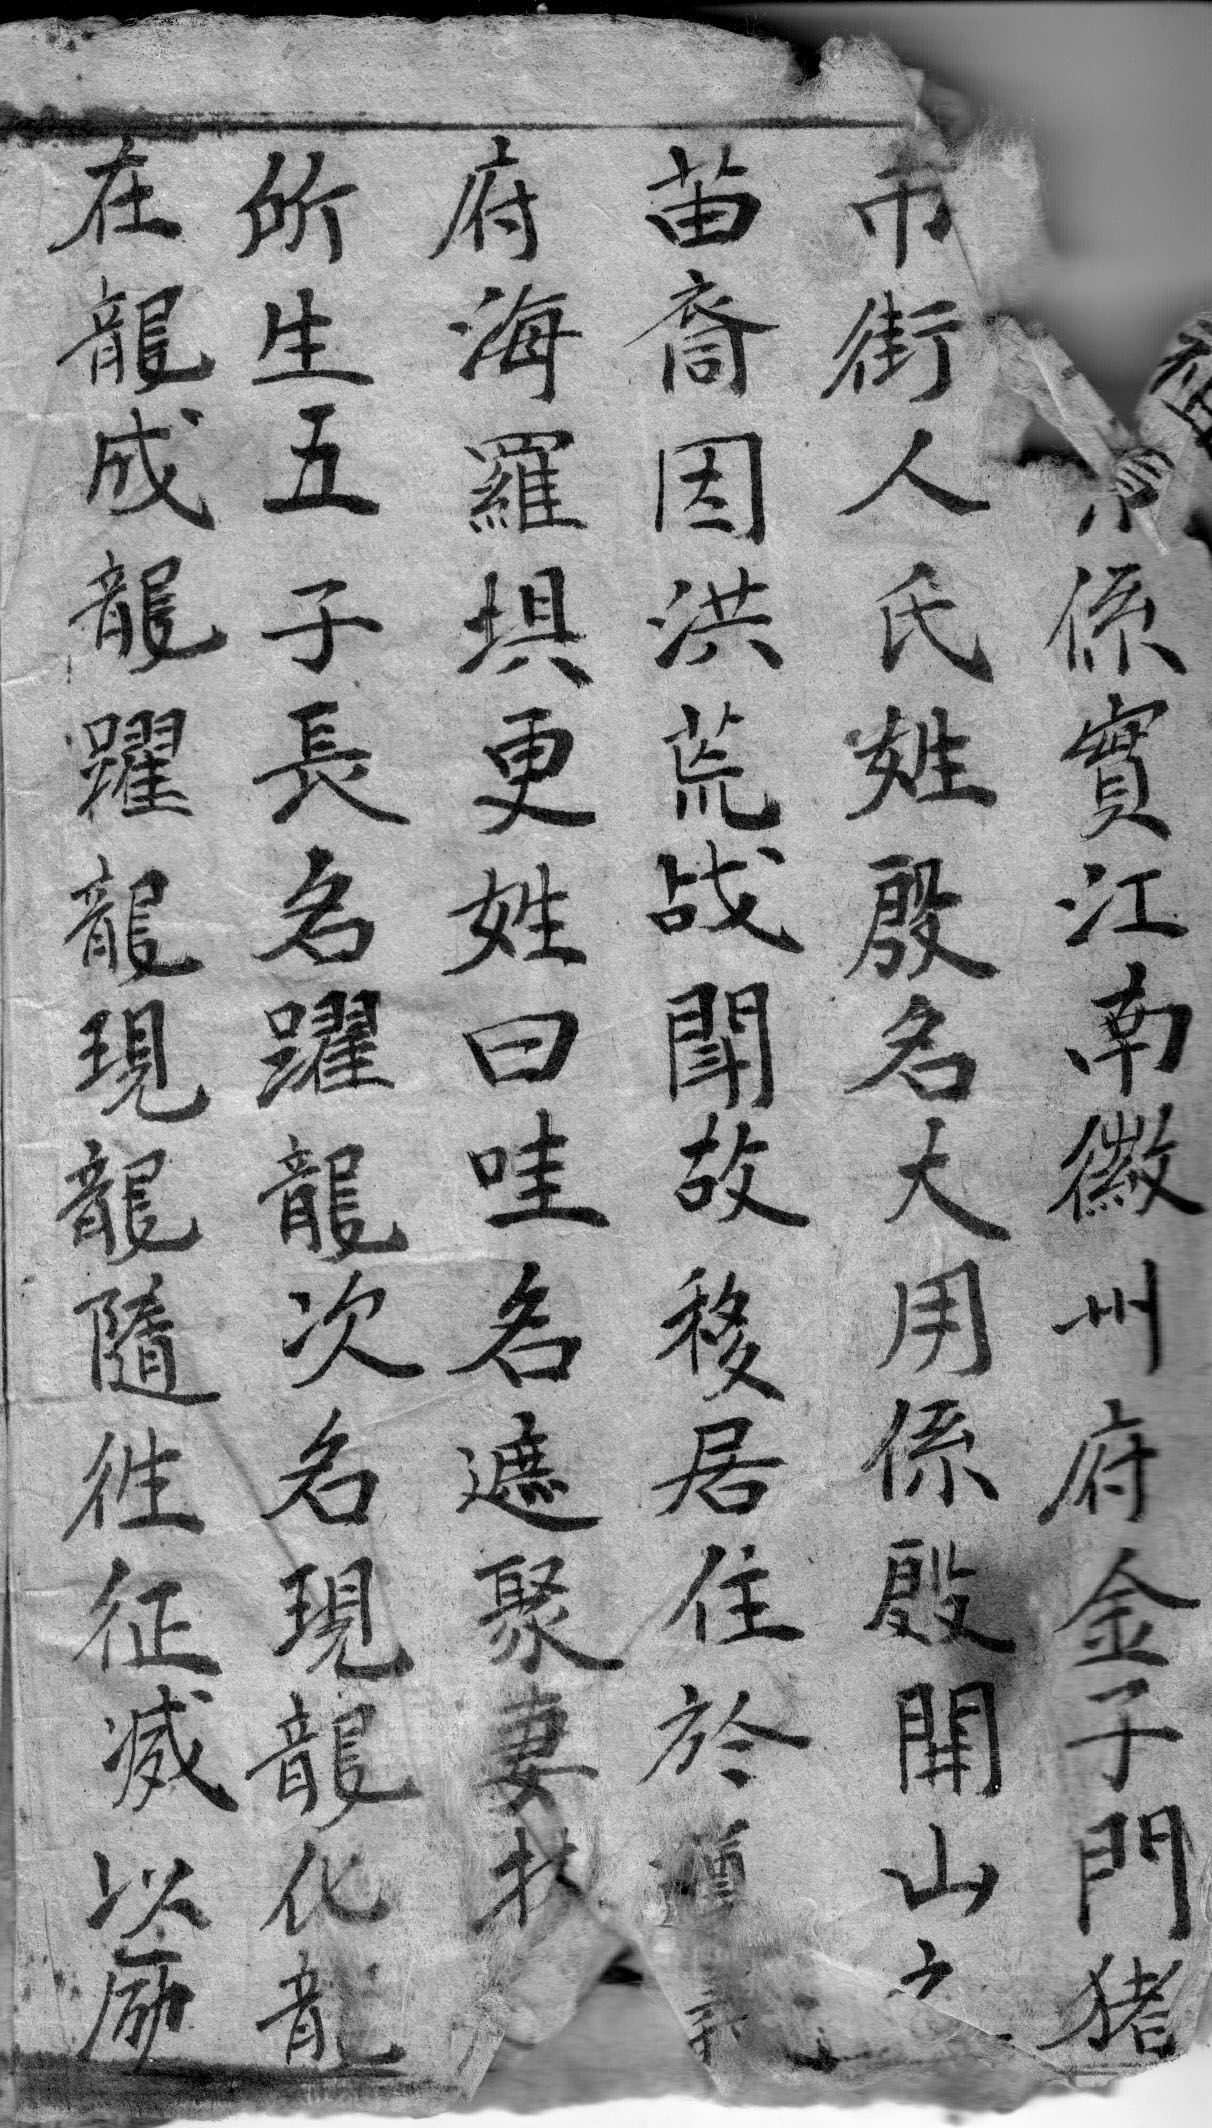 係實江南徽州府金子門猪
市街人氏姓殷名大用係殷開山之
苗裔因洪荒战鬪故移居住於
府海羅埧更姓曰哇名遮聚妻
所生五子長名躍龍次名現龍化龍
在龍成龍躍龍現龍隨徃征滅以勋